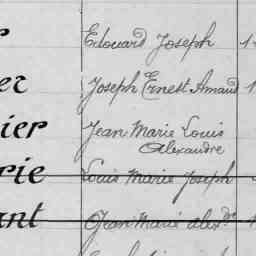 Edouard Joseph 1
er Joseph Ernest Amand 1
ier Jean Marie Louis
Alexandre
rie Louis Marie Joseph
ant Jean Marie alex